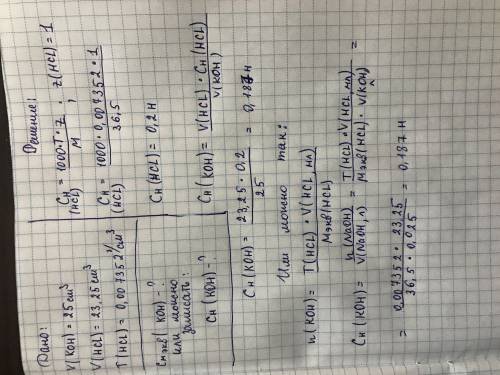 Дано:
V(KOH) = 25 см³
V(HCl) = 23,25 см³
T(HCl) = 0,007352 г/см³
Cм экв (KOH) - ?
или можно
записать:
Cн (KOH) - ?
Решение:
Cн (HCl) = 1000 • T • z / M , z (HCl) = 1
Cн (HCl) = 1000 • 0,007352 • 1 / 36,5
Cн (HCl) = 0,2 н
Cн (KOH) = V(HCl) • Cн (HCl) / V(KOH)
Cн (KOH) = 23,25 • 0,2 / 25 = 0,187 н
Или можно так:
n(KOH) = T(HCl) • V(HCl, мл) / M экв (HCl)
Cн (KOH) = n(NaOH) / V(NaOH, л) = T(HCl) • V(HCl, мл) / M экв (HCl) • V(KOH) =
= 0,007352 • 23,25 / 36,5 • 0,025 = 0,187 н